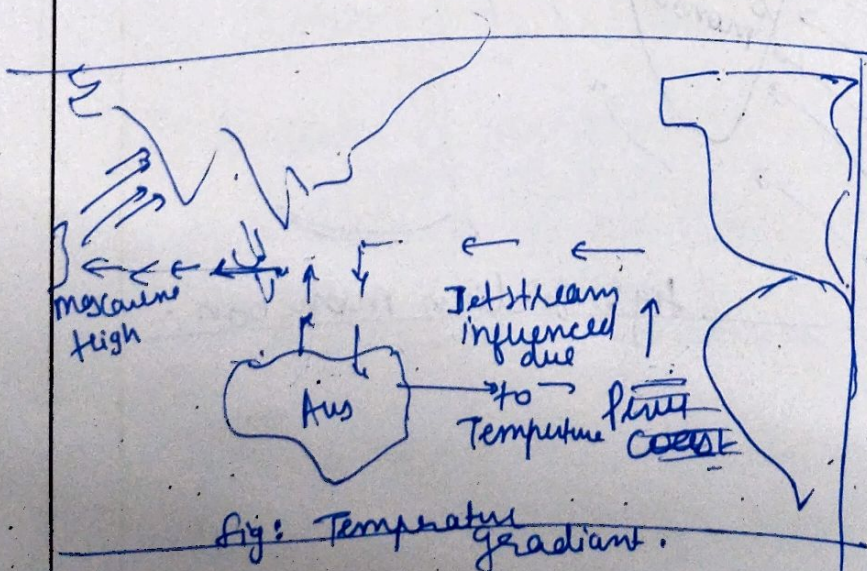 Mascarene
High
Aus
Jetstream
influenced
due
to
Temperture
Peru
coast
fig: Temperatur
gradiant.